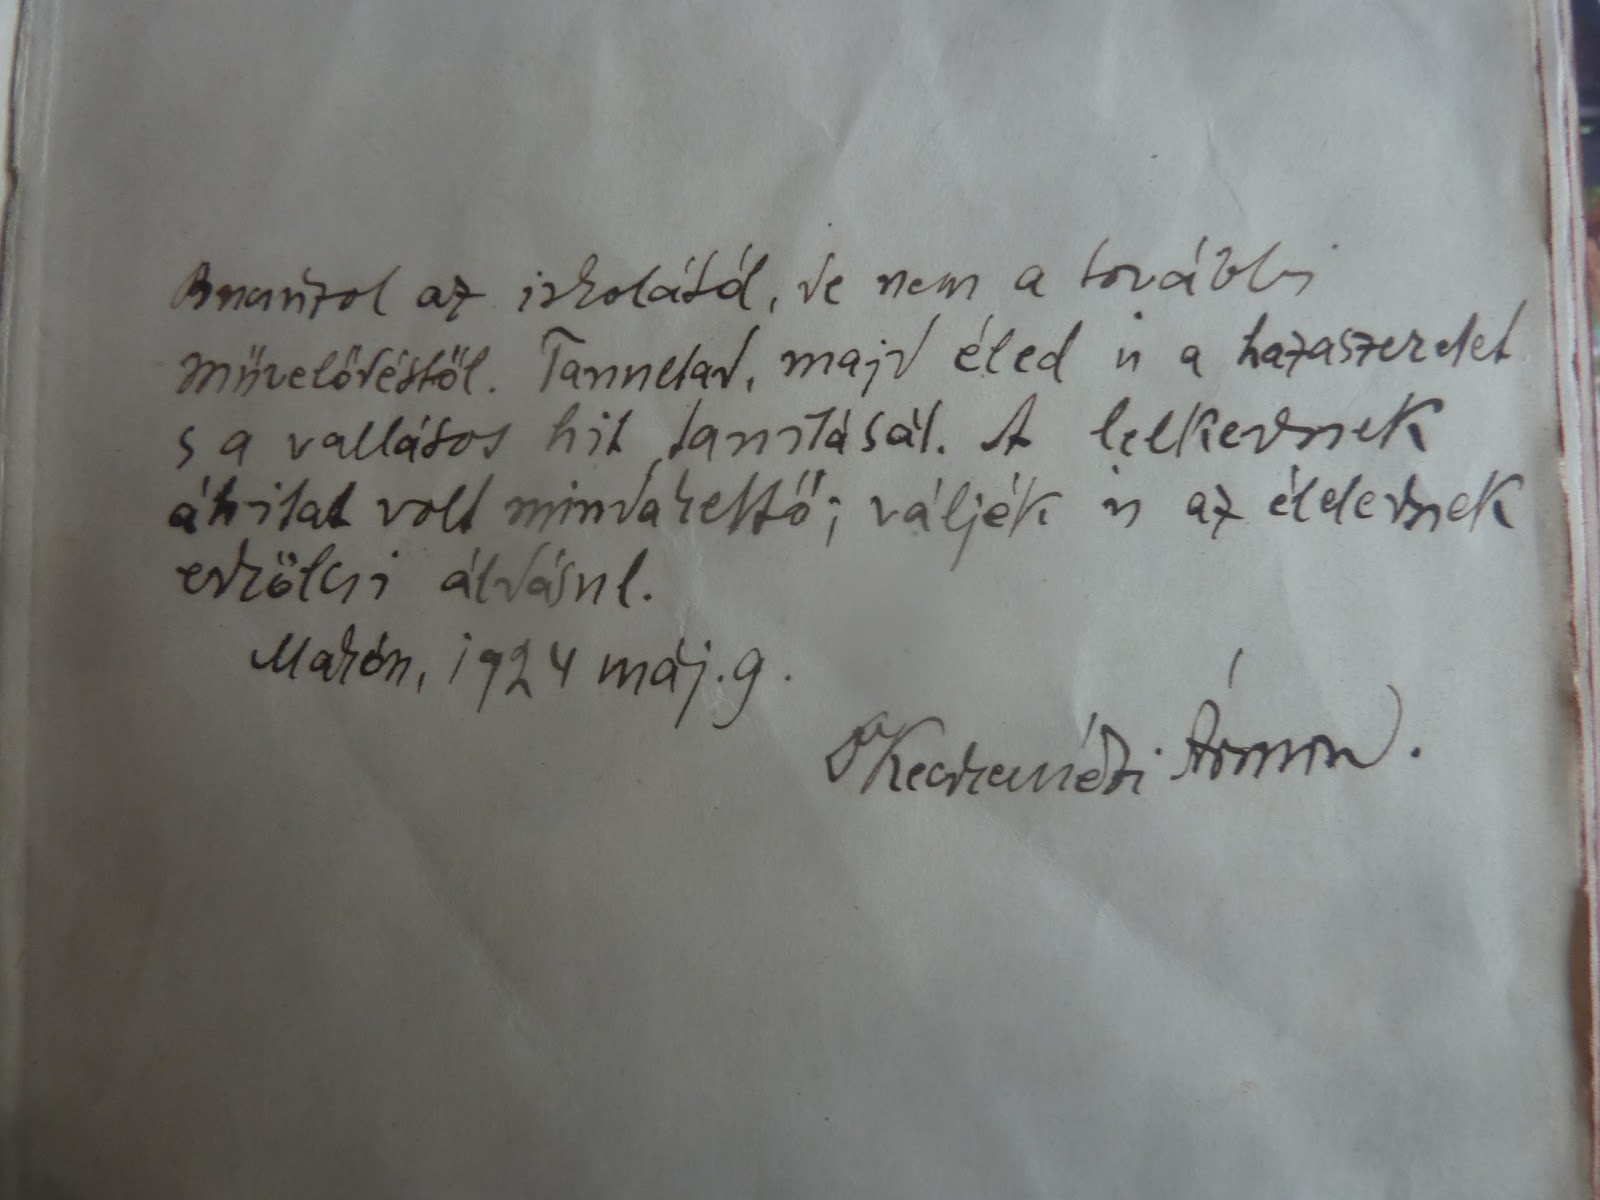 Bucsúzol az iskolától, de nem a további
művelődéstől. Tanultad, majd éled is a hazaszeretet
s a vallásos hit tanítását. A lelkednek
áhitat volt mindakettő; váljék is az életednek
erkölcsi áldásul.
Makón, 1924 máj. 9.
Dr Kecskeméti Ármin.